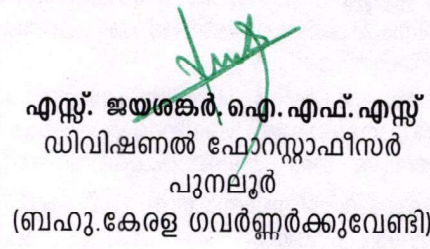 എസ്സ്. ജയശങ്കർ, ഐ.എഫ്.എസ്സ്
ഡിവിഷണൽ ഫോറസ്റ്റാഫീസർ
പുനലൂർ
(ബഹു.കേരള ഗവർണ്ണർക്കുവേണ്ടി)